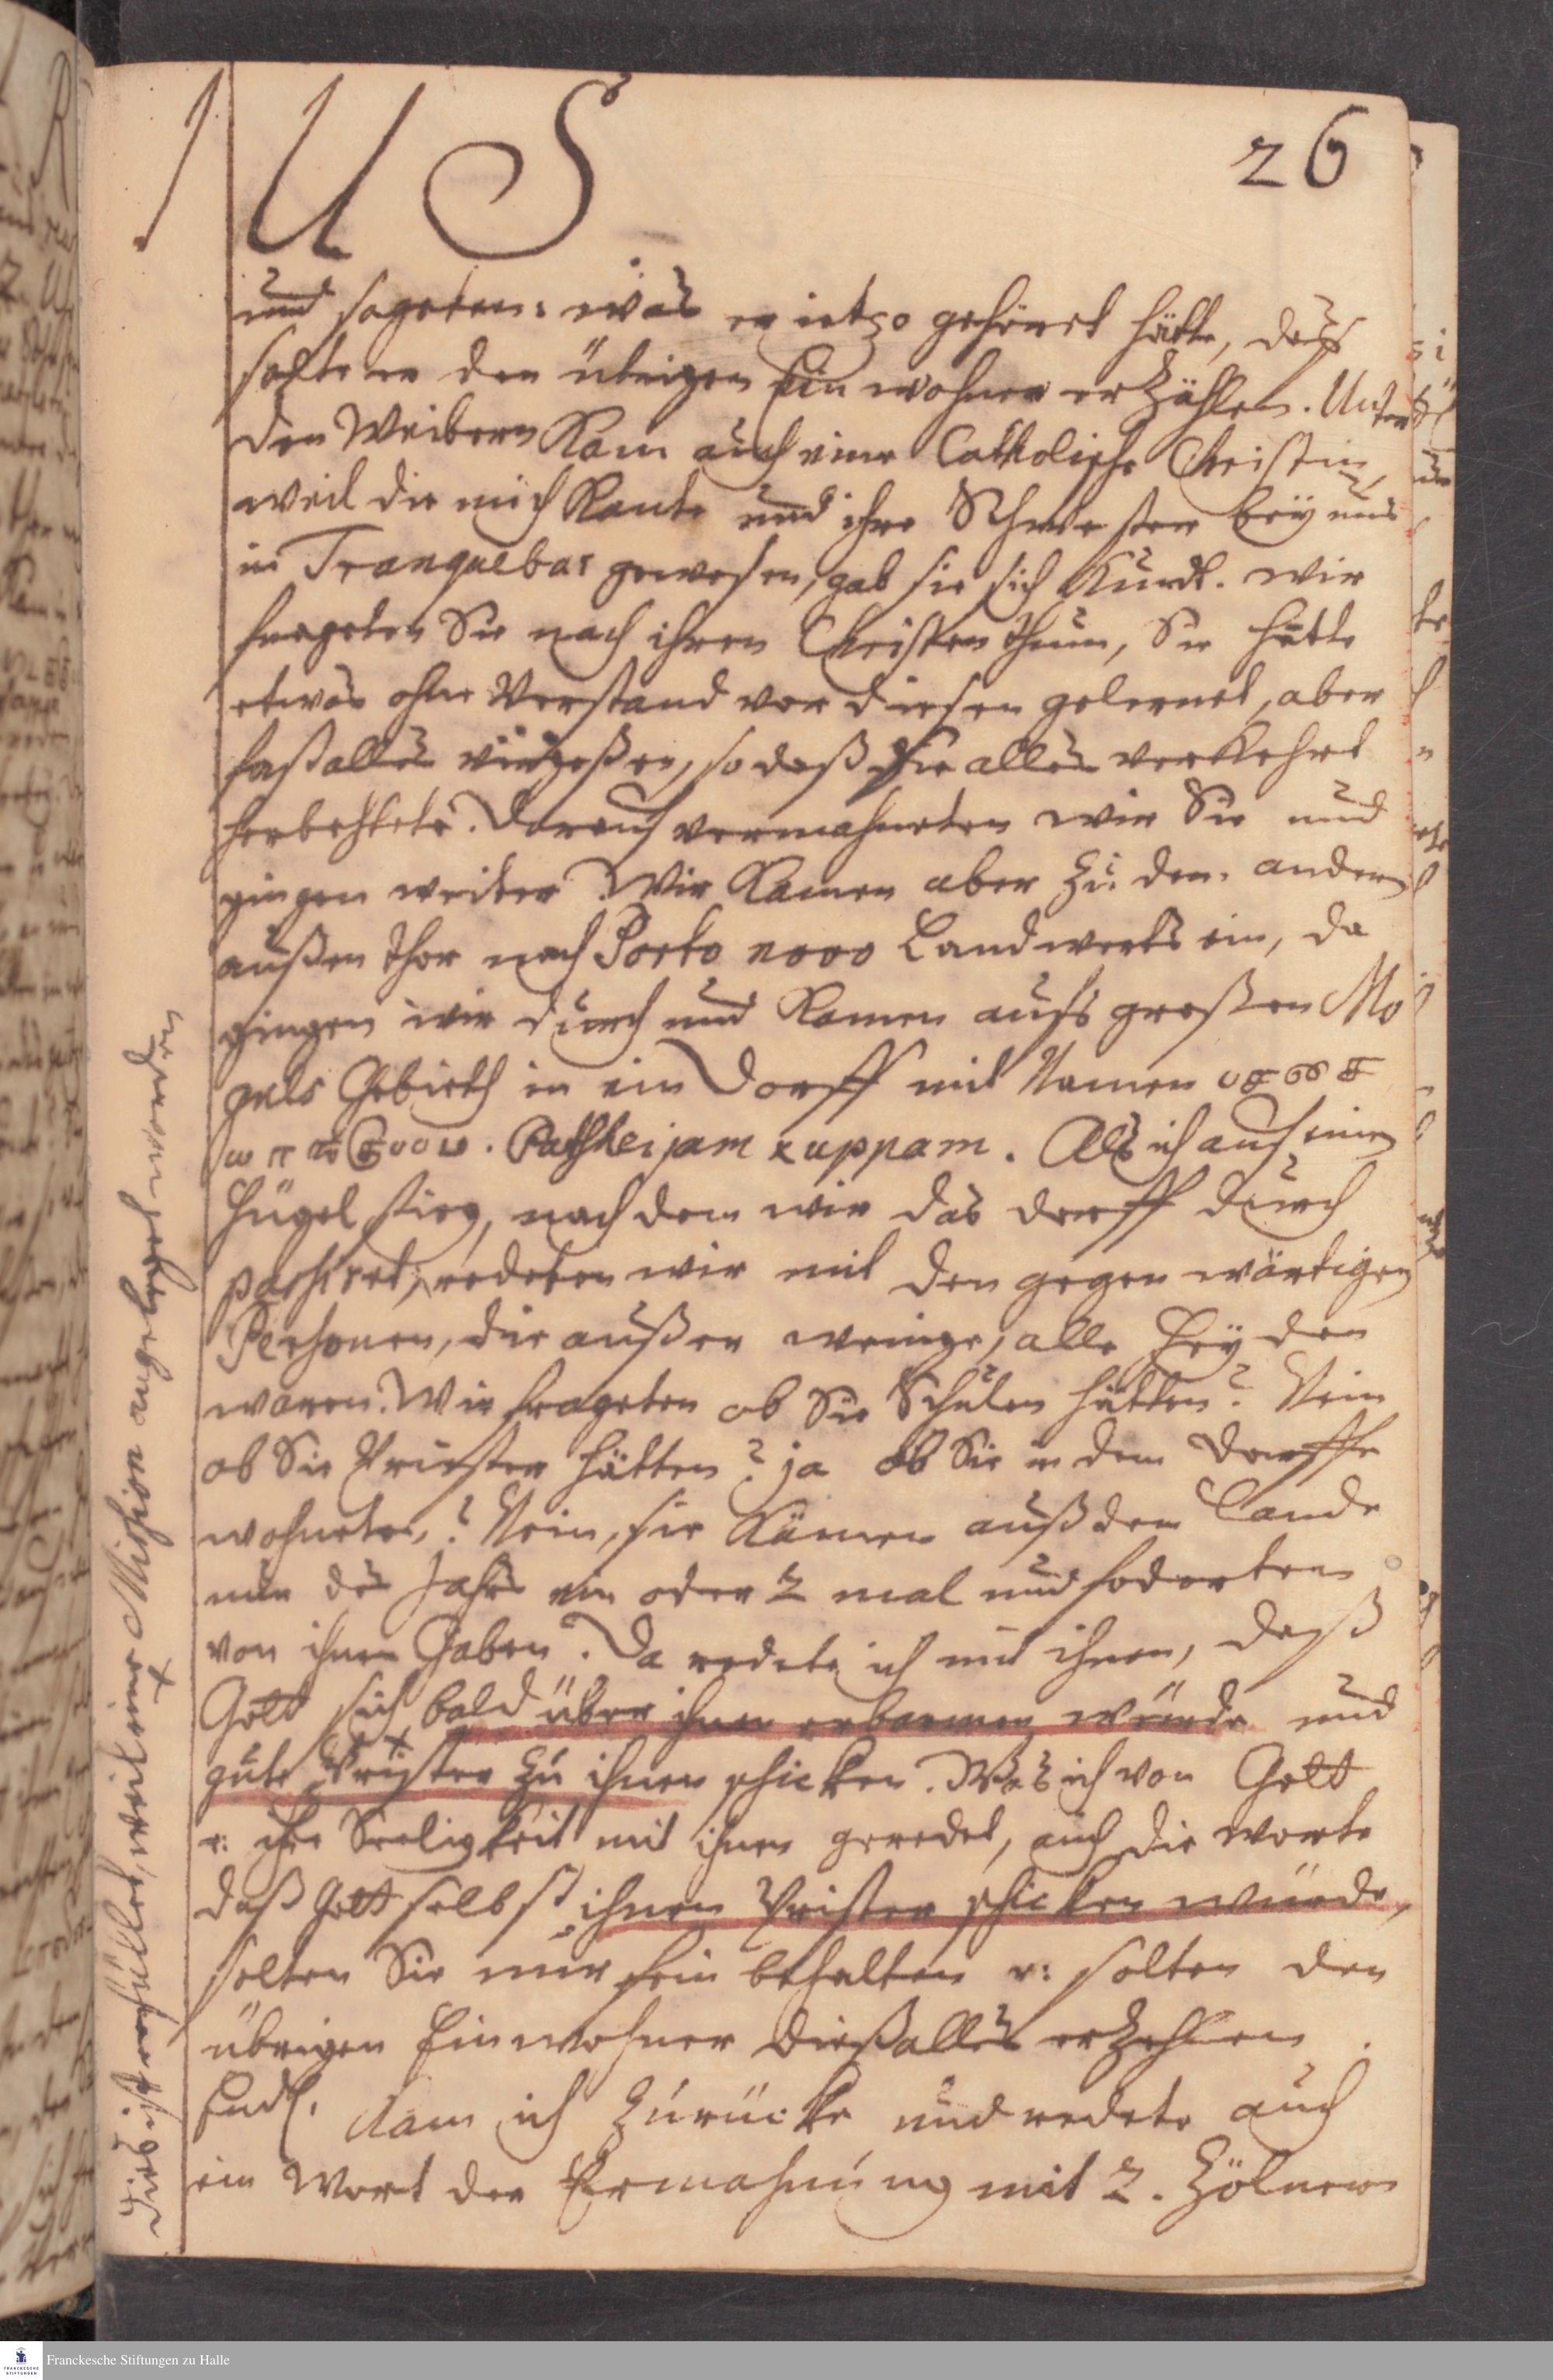 IUS
26
und sageten: was er ietzo gehöret hätte, daß
solte er den übrigen Einwohner erzählen. Unter
den Weibern Kam auch eine Catholische Christin,
weil die mich Kante und ihre Schwester bey uns
in Tranquebar gewesen, gab sie sich Kund. wir
frageten Sie nach ihren Christenthum, Sie hatte
etwas ohne Verstand vor diesen gelernet, aber
fast alles vergeßen, so daß sie alles verkehrt
herbethete. Darauf vermahneten wir Sie und
gingen weiter. Wir Kamen aber zu dem andern
außen thor nach Porto novo Landwerts ein, da
gingen wir durch und Kamen aufs großen Mo
guls Gebieth in ein Dorff mit Namen
Pathkeijam kuppam. Als ich auf einen
hügel stieg, nach dem wir das dorff durch
passiret, redeten wir mit den gegenwärtigen
Personen, die außer wenige, alle Heyden
waren. Wir frageten ob Sie Schulen hätten? Nein
ob Sie Priester hätten? ja ob Sie in dem Dorffe
wohneten? Nein, sie Kämen auß dem Lande
nur des Jahrs ein oder 2 mal und foderten
von ihnen Gaben. Da redete ich mit ihnen, daß
Gott sich bald über ihnen erbarmen würde und
gute Prister zu ihnen schicken. Was ich von Gott
u: ihre Seeligkeit mit ihnen geredet, auch die worte
daß Gott selbst ihnen Prister schicken würde,
solten Sie nur fein behalten u: solten den
übrigen Einwohner dieß alles erzehlen.
Endl. Kam ich zurücke und redete auch
ein Wort der Ermahnung mit 2. Zölnern
dies ist erfüllet, weil eine Mission angeleget worden
Franckesche Stiftungen zu Halle